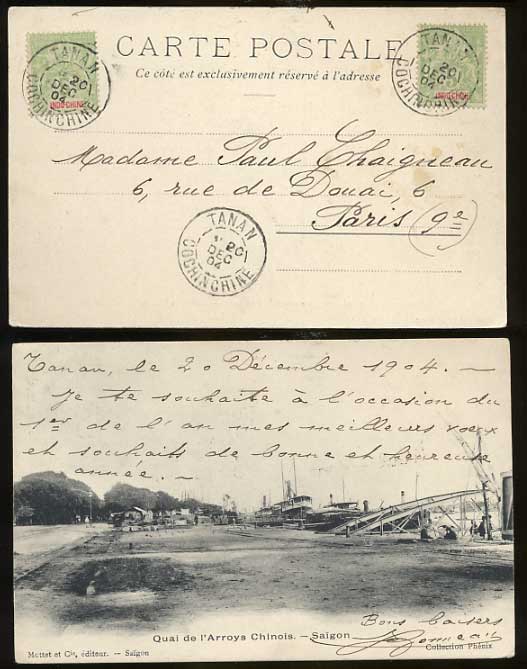 CARTE POSTALE
Ce côté est exclusivement réservé à l'adresse
TANAN
20
DEC
04
COCHINCHINE
INDO-CHINE
TANAN
20
DEC
04
COCHINCHINE
INDO-CHINE
Madame Paul Chaigneau
6, rue de Douai, 6
Paris (9e)
TANAN
20
DEC
04
COCHINCHINE
Tanan, le 20 Décembre 1904. —
Je te souhaite à l'occasion du
1er de l'an mes meilleurs voeux
et souhaits de bonne et heureuse
année. —
Quai de l'Arroyo Chinois. — Saigon
Bons baisers
Mottet et Cie, éditeur. — Saïgon
Collection Phénix